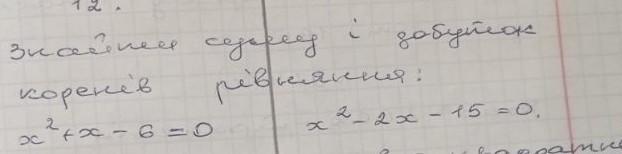 12.
знайти суму і добуток
коренів рівняння:
x² + x - 6 = 0 x² - 2x - 15 = 0.